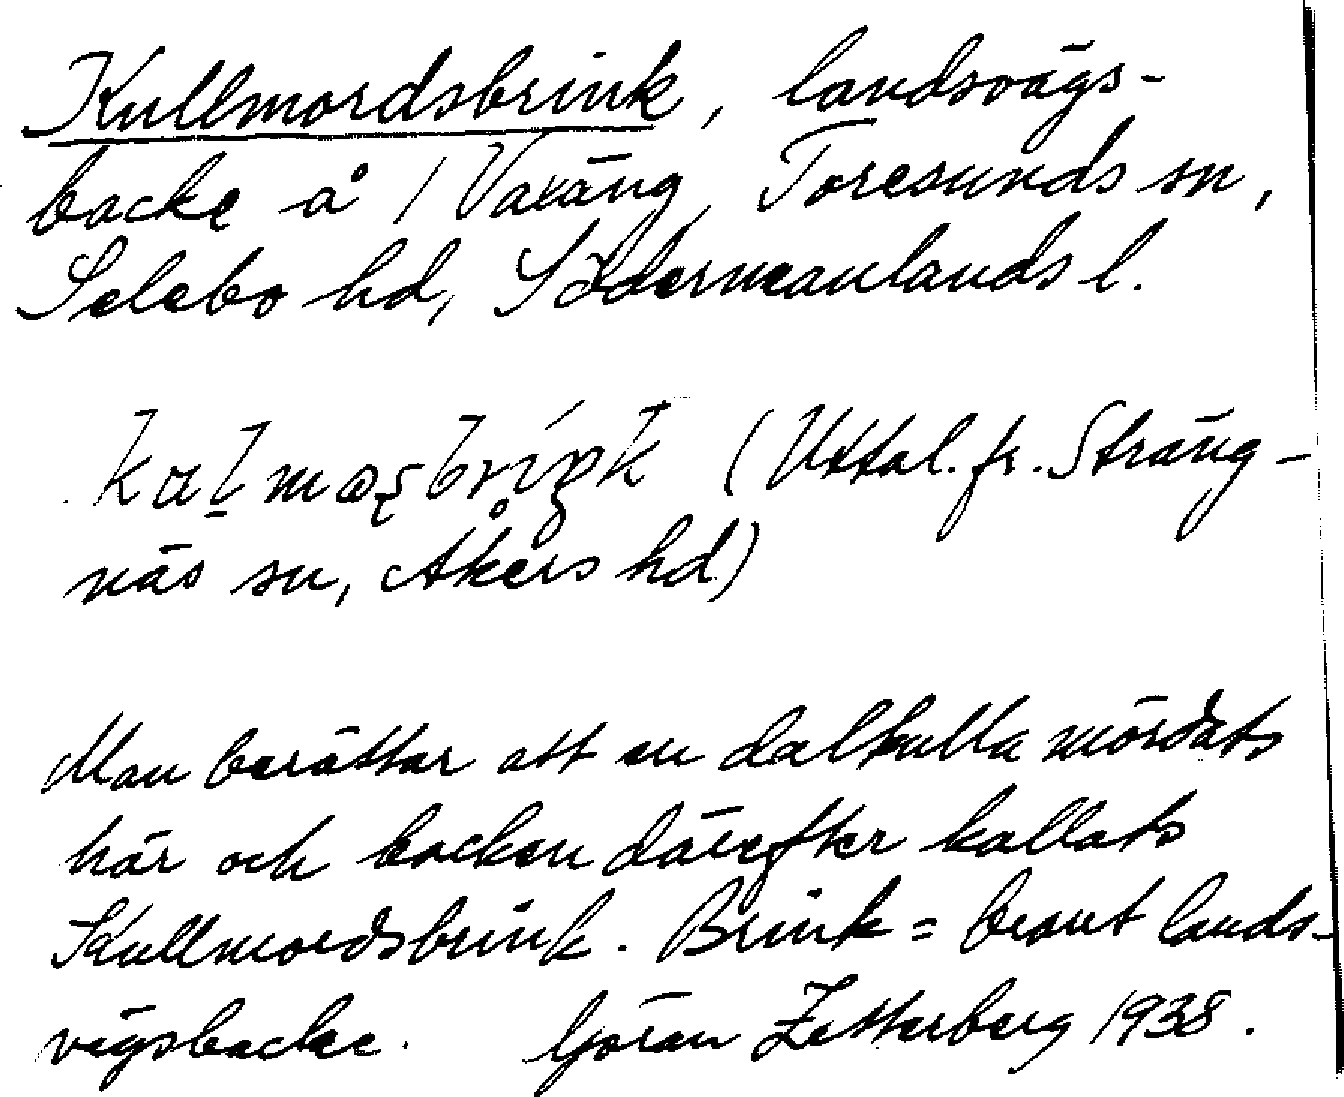 Kullmordsbrink, landsvägs-
backe å / Varäng, Toresunds sn,
Selebo hd, Södermanlands l.
(Uttal. fr. Sträng-
näs sn, Åkers hd)
Man berättar att en dalkulla mördats
här och backen därefter kallats
Kullmordsbrink. Brink = brant lands-
vägsbacke. Göran Zetterberg 1938.